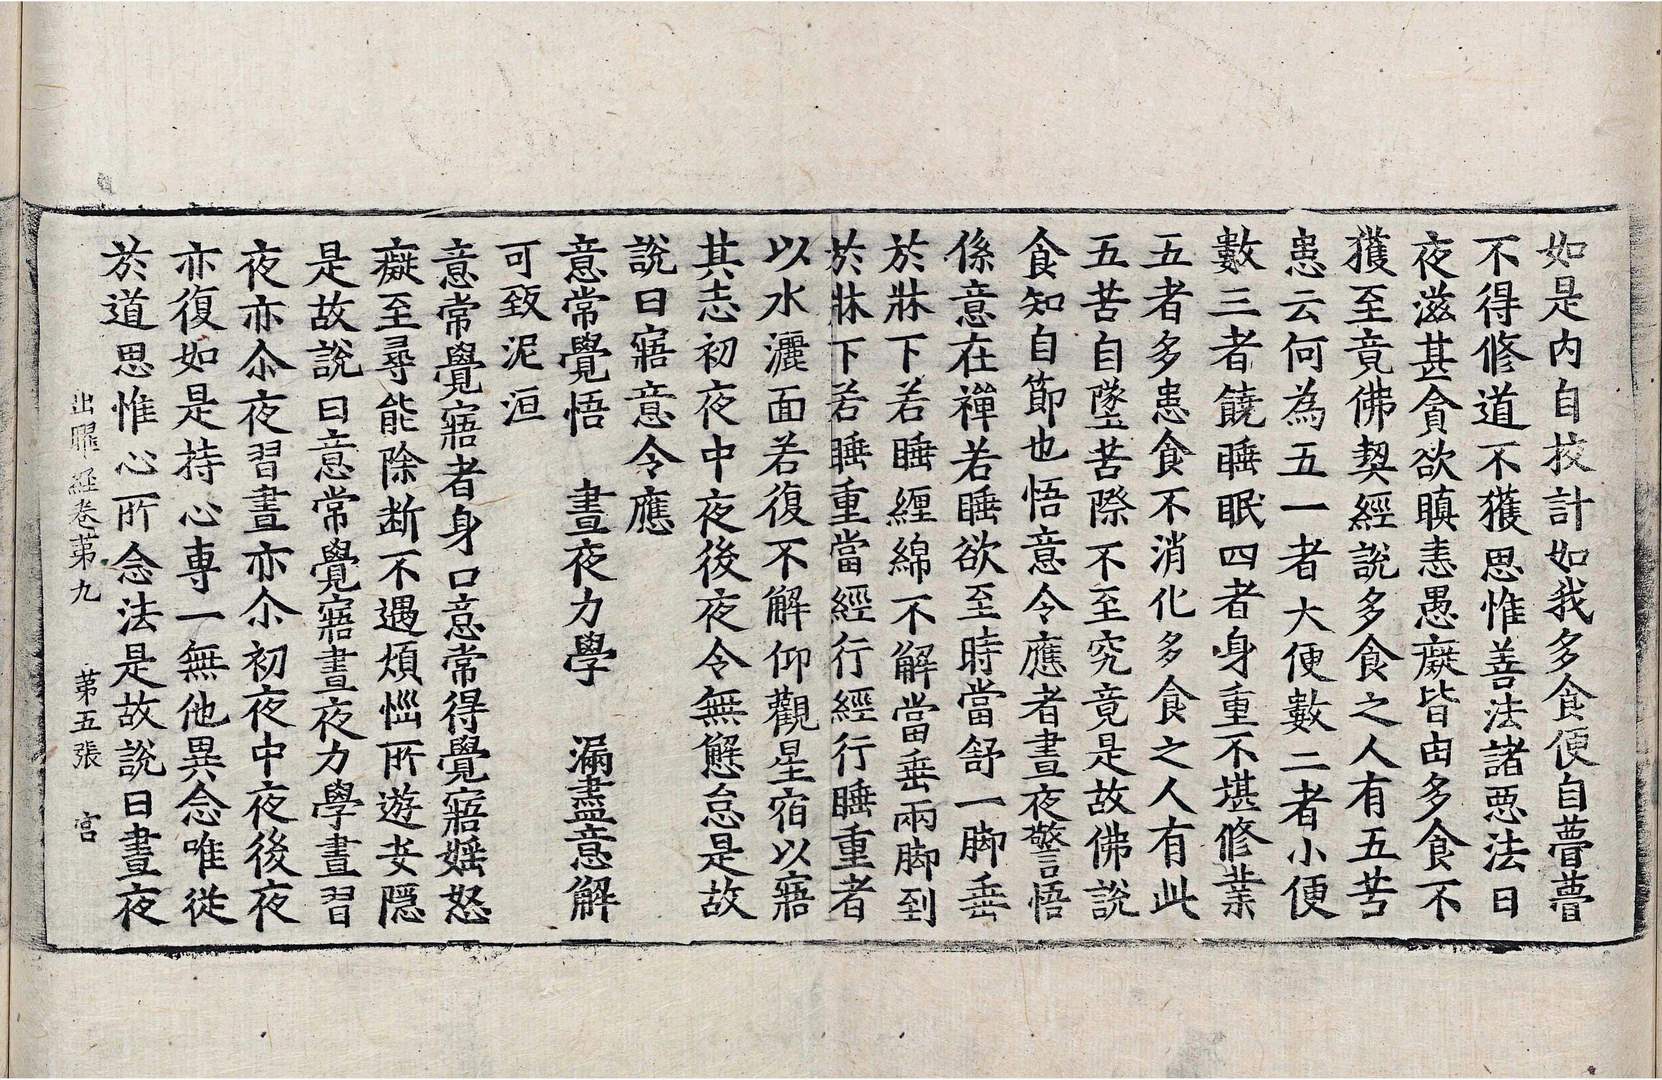 如是内自校計如我多食便自瞢瞢
不得修道不獲思惟善法諸惡法日
夜滋甚貪欲瞋恚愚癡皆由多食不
獲至竟佛契經說多食之人有五苦
患云何為五一者大便數二者小便
數三者饒睡眠四者身重不堪修業
五者多患食不消化多食之人有此
五苦自墜苦際不至究竟是故佛說
食知自節也悟意令應者晝夜警悟
係意在禪若睡欲至時當舒一脚垂
於牀下若睡纏綿不解當垂兩脚到
於牀下若睡重當經行經行睡重者
以水灑面若復不解仰觀星宿以寤
其志初夜中夜後夜令無懈怠是故
說曰寤意令應
意常覺悟　晝夜力學　漏盡意解
可致泥洹
意常覺寤者身口意常得覺寤婬怒
癡至尋能除断不遇煩惱所遊安隱
是故說曰意常覺寤晝夜力學晝習
夜亦尒夜習晝亦尒初夜中夜後夜
亦復如是持心專一無他異念唯從
於道思惟心所念法是故說曰晝夜
出曜經卷苐九　苐五張　宫